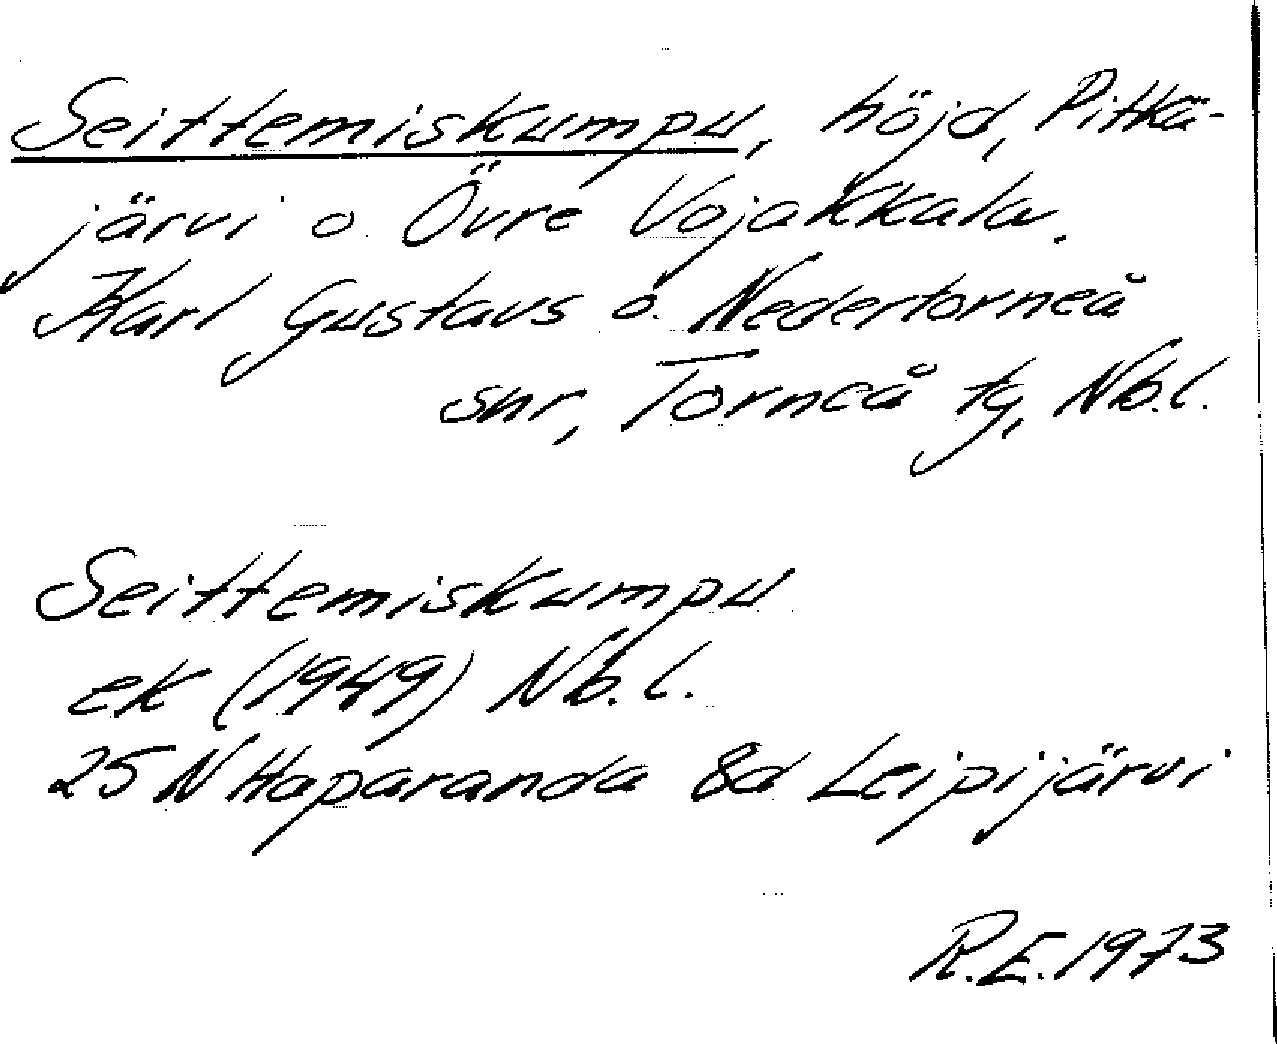 Seittemiskumpu, höjd, Pitkä-
järvi o. Övre Vojakkala.
Karl Gustavs o. Nedertorneå
snr, Torneå tg, Nb.l.
Seittemiskumpu
ek (1949) Nb.l.
25 N Haparanda 8d Leipijärvi
R.E. 1973